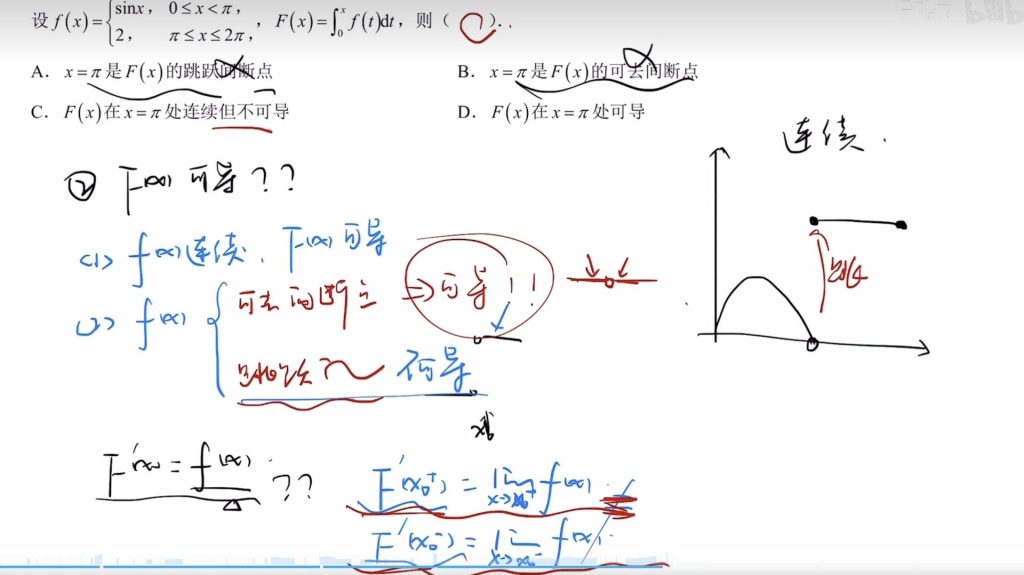 设 f(x)={sinx, 0≤x<π, 2, π≤x≤2π, , F(x)=∫₀ˣ f(t)dt，则（ C ）.
A. x=π是F(x)的跳跃间断点
B. x=π是F(x)的可去间断点
C. F(x)在x=π处连续但不可导
D. F(x)在x=π处可导
连续.
② F(x) 可导??
(1) f(x)连续. F(x)可导
(2) f(x) { 可去间断点 ⇒ 可导!!
跳跃
不可导
F'(x) = f(x) ??
F'(x₀⁺) = lim x→x₀⁺ f(x).
F'(x₀⁻) = lim x→x₀⁻ f(x).